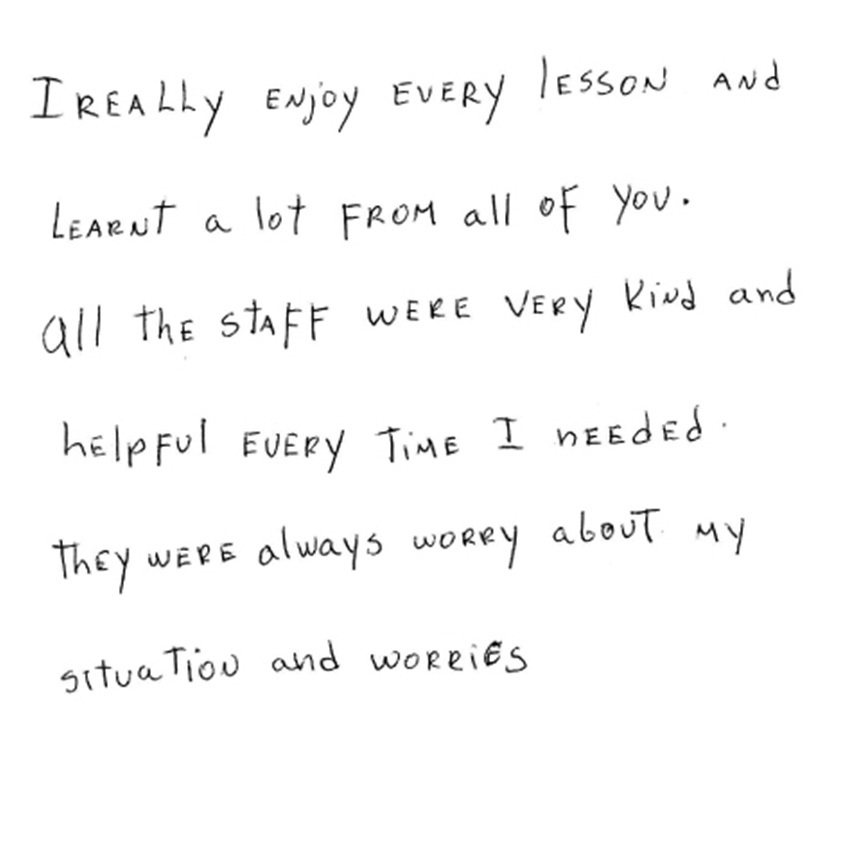 I REALLY ENJOY EVERY lESSON AND
LEARNT a lot FROM all OF YOU.
all thE STAFF WERE VERY KiNd and
hElpFul EVERY TiME I nEEdEd.
thEy WERE always WORRY aboUT MY
situaTioN and WORRiES